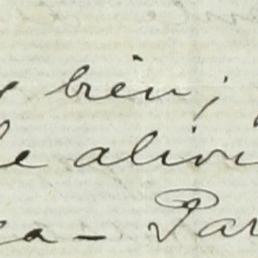 y bien;
le alivi
ga - Par